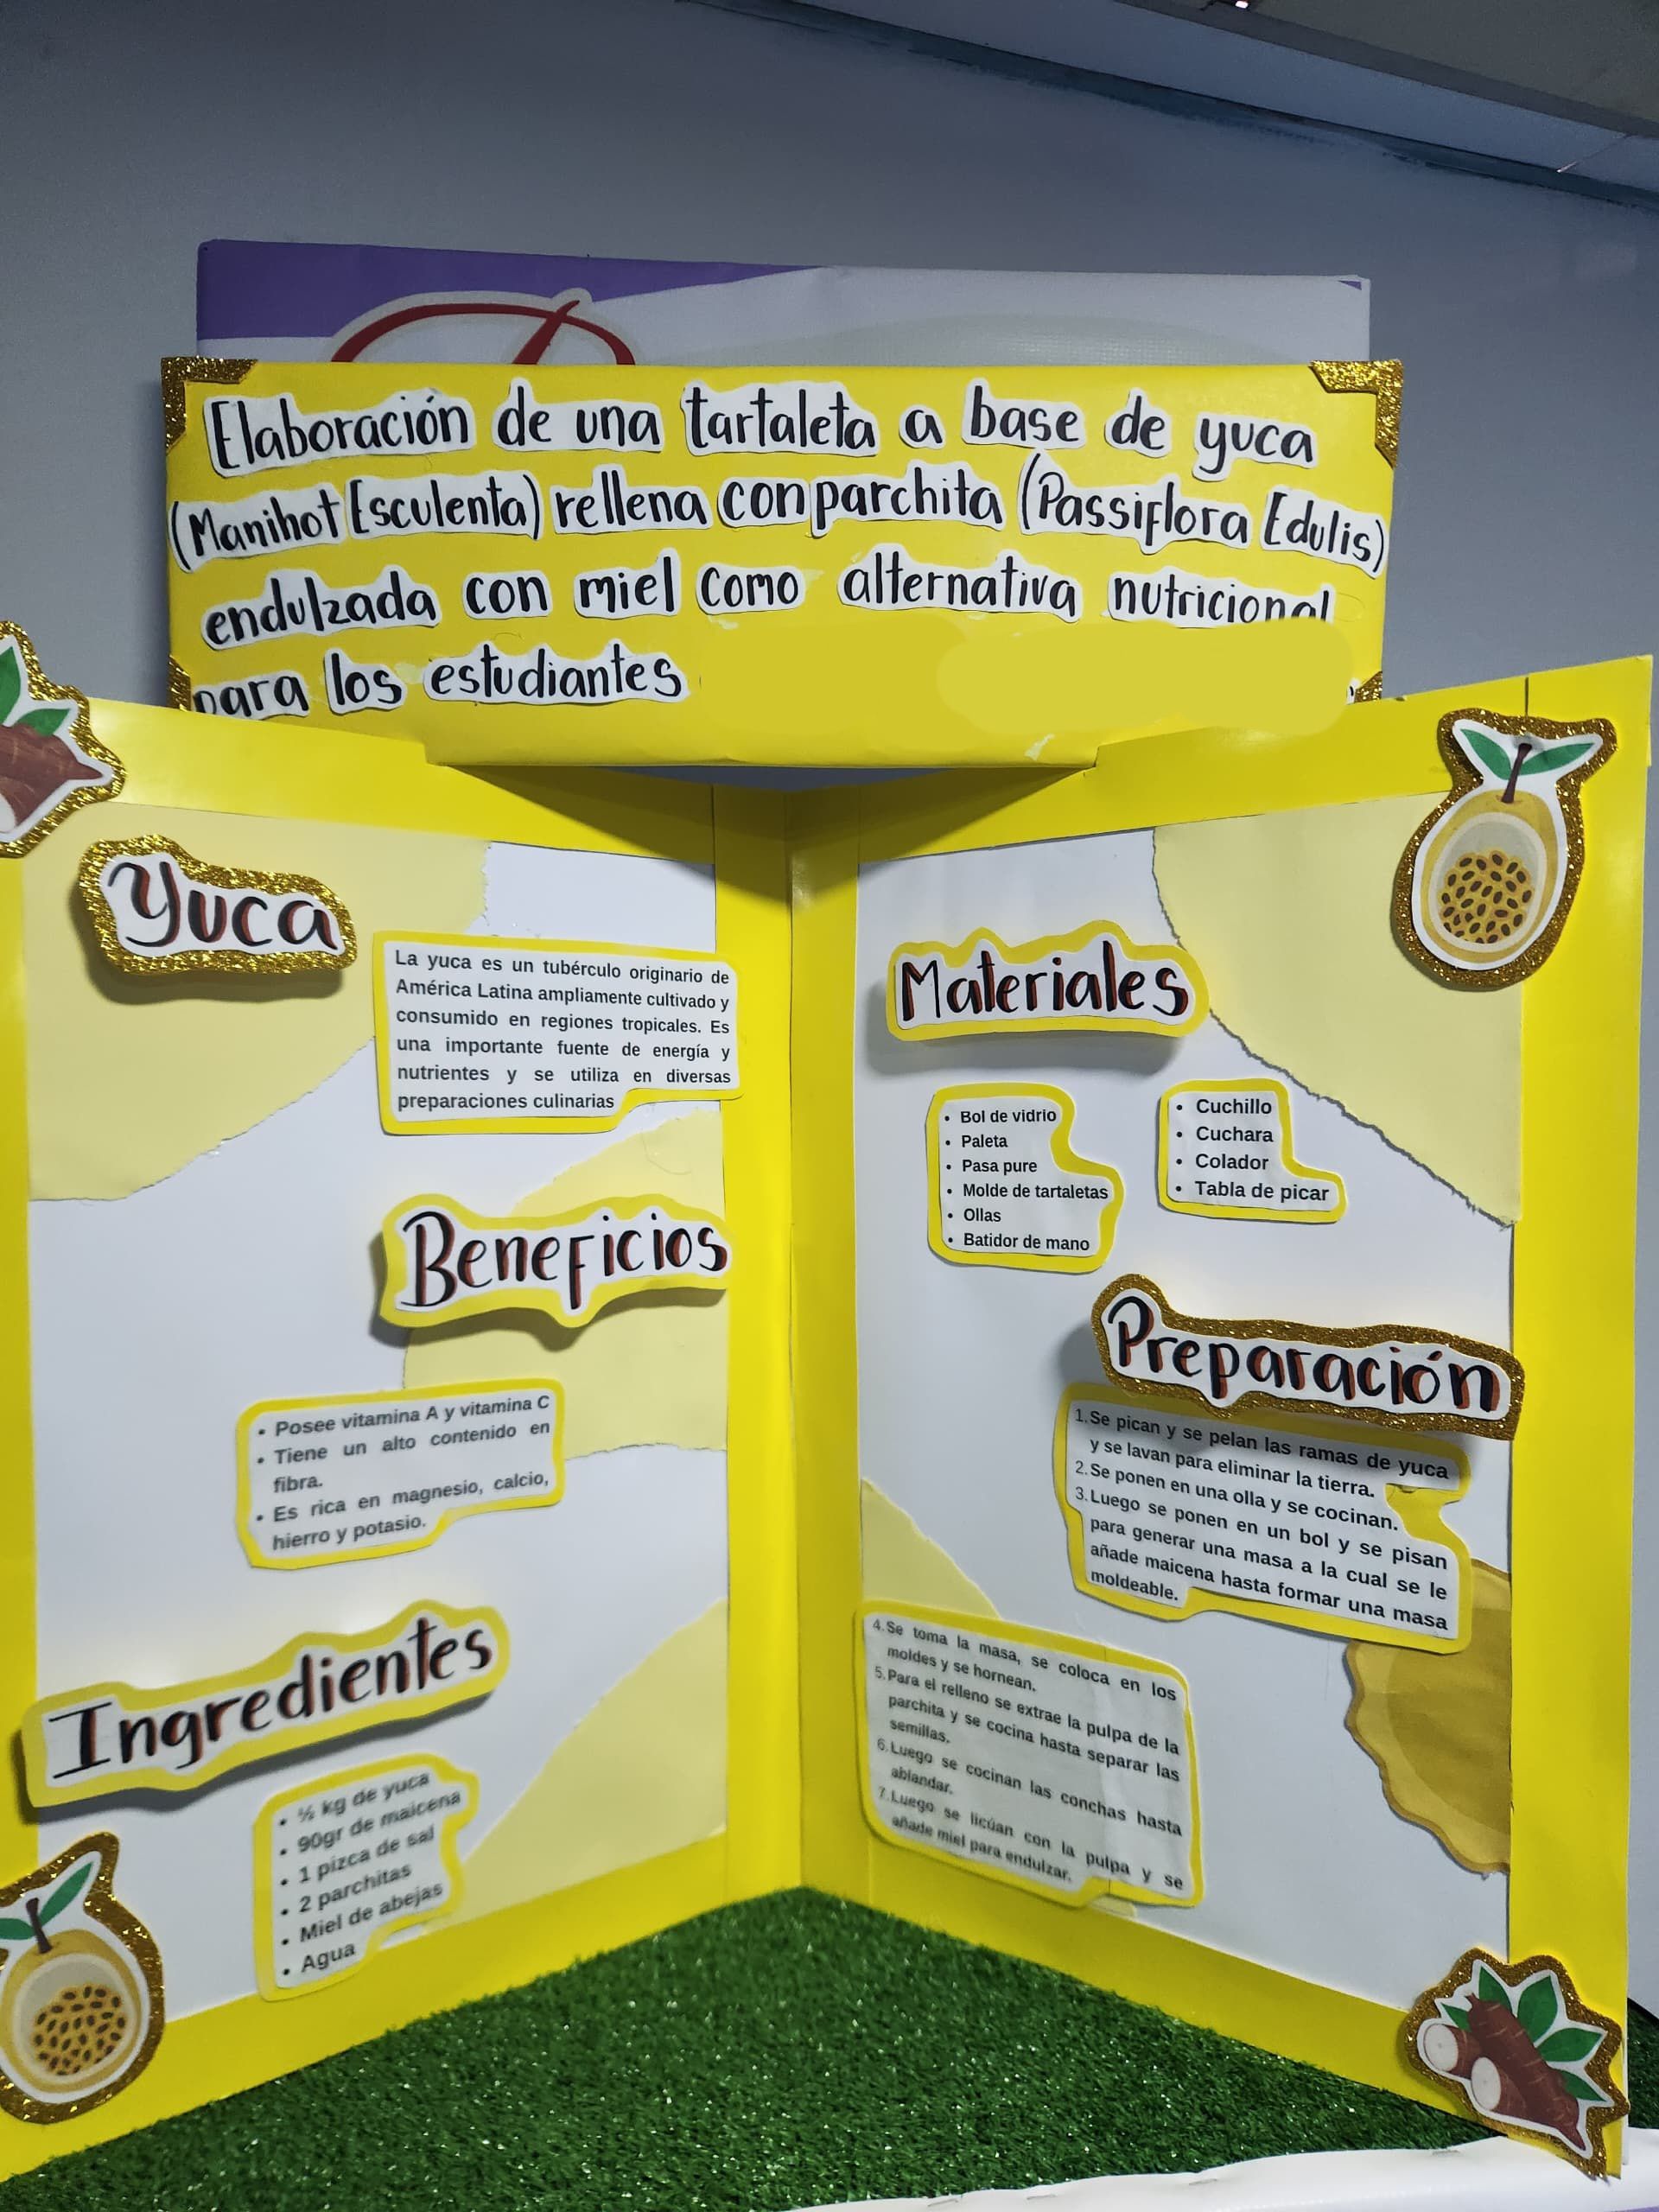 Elaboración de una tartaleta a base de yuca
(Manihot Esculenta) rellena con parchita (Passiflora Edulis)
endulzada con miel como alternativa nutricional
para los estudiantes
Yuca
La yuca es un tubérculo originario de
América Latina ampliamente cultivado y
consumido en regiones tropicales. Es
una importante fuente de energía y
nutrientes y se utiliza en diversas
preparaciones culinarias
Beneficios
• Posee vitamina A y vitamina C
• Tiene un alto contenido en
fibra.
• Es rica en magnesio, calcio,
hierro y potasio.
Ingredientes
• ½ kg de yuca
• 90gr de maicena
• 1 pizca de sal
• 2 parchitas
• Miel de abejas
• Agua
Materiales
• Bol de vidrio
• Paleta
• Pasa pure
• Molde de tartaletas
• Ollas
• Batidor de mano
• Cuchillo
• Cuchara
• Colador
• Tabla de picar
Preparación
1. Se pican y se pelan las ramas de yuca
y se lavan para eliminar la tierra.
2. Se ponen en una olla y se cocinan.
3. Luego se ponen en un bol y se pisan
para generar una masa a la cual se le
añade maicena hasta formar una masa
moldeable.
4. Se toma la masa, se coloca en los
moldes y se hornean.
5. Para el relleno se extrae la pulpa de la
parchita y se cocina hasta separar las
semillas.
6. Luego se cocinan las conchas hasta
ablandar.
7. Luego se licúan con la pulpa y se
añade miel para endulzar.